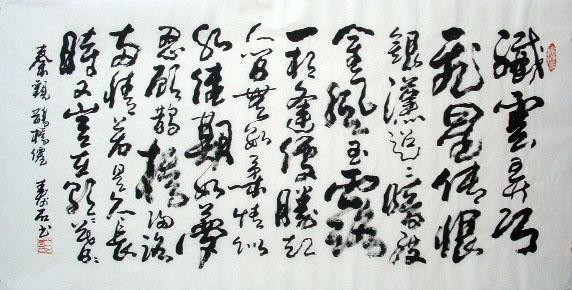 纖雲弄巧
飛星傳恨
銀漢迢〻暗度
金風玉露
一相逢便勝卻
人間無數柔情似
水佳期如夢
忍顧鵲橋歸路
兩情若是久長
時又豈在朝〻暮〻
秦觀 鵲橋僊 石書